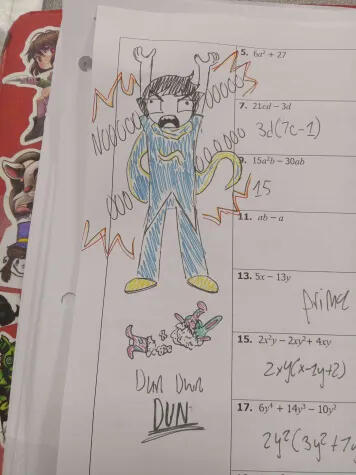 5. 6a² + 27
NOOOOO
OOOOO
7. 21cd − 3d
3d(7c-1)
OOOOOO
9. 15a²b − 30ab
15
OOO
11. ab − a
13. 5x − 13y
prime
15. 2x²y − 2xy² + 4xy
2xy(x-y+2)
Dun Dun
DUN
17. 6y⁴ + 14y³ − 10y²
2y²(3y²+7y